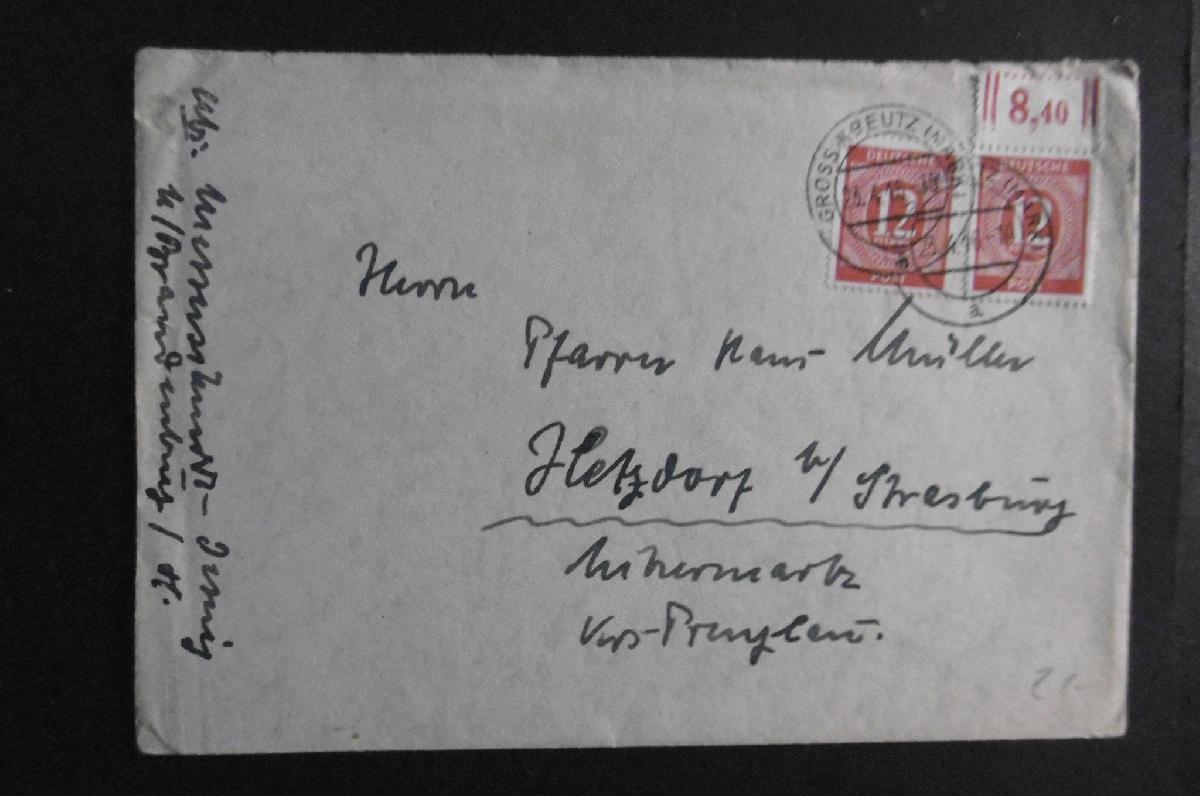 8,40
GROSS-KREUTZ
DEUTSCHE
12
POST
DEUTSCHE
12
POST
a
a
Herrn
Pfarrer Hans Müller
Hetzdorf b/ Strasburg
Uckermark
Krs-Prenzlau.
Abs:
u/Brandenburg / H.